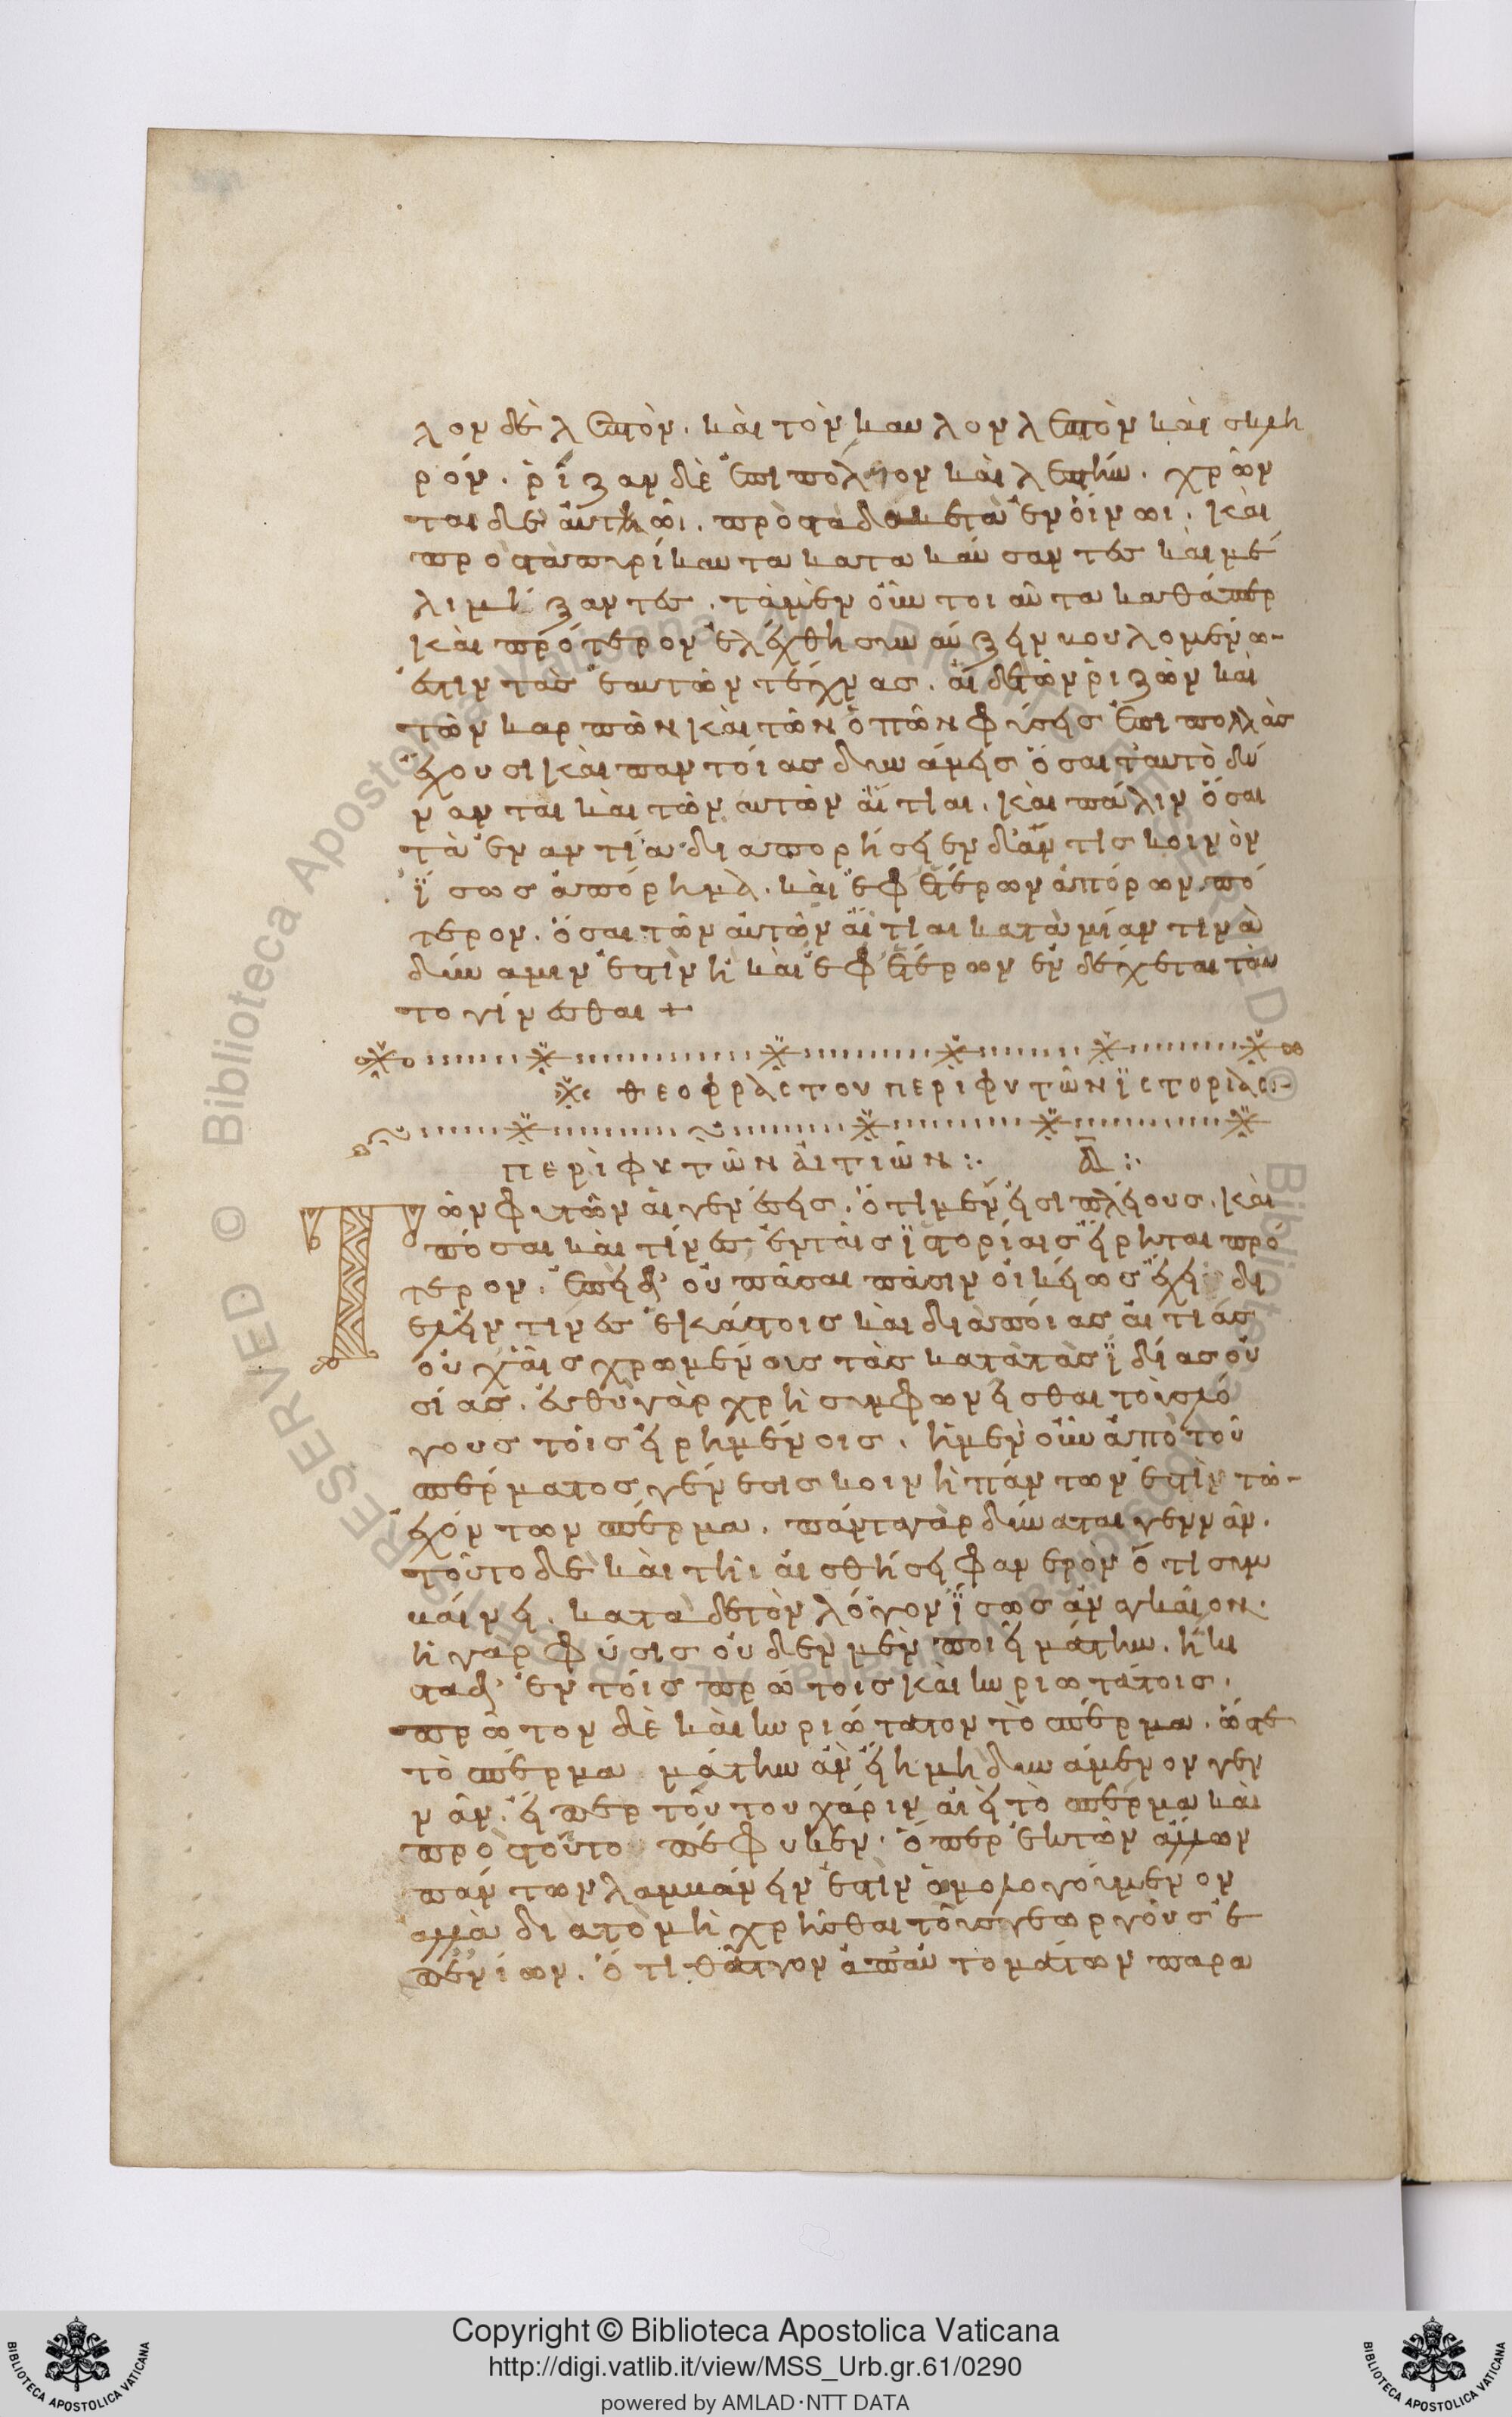 λον δὲ λεπτὸν. καὶ τὸν καυλον λεπτὸν καὶ σκλη
ρόν. ῥίζαν δὲ ἐπιπόλαιον καὶ λεπτήν. χρῶν
ται δὲ αὐτῶι. πρὸς τὰ δακετὰ ἐν οἴνωι. καὶ
πρὸς τὰ πυρίκαυτα κατακαύσαντες καὶ μέ
λι μίξαντες. τὰ μὲν οὖν τοιαῦτα καθάπερ
καὶ πρότερον ἐλέχθη συναύξειν βουλομένω
ἐστιν τὰς ἑαυτῶν τέχνας. αἱ δὲ τῶν ῥιζῶν καὶ
τῶν καρπῶν καὶ τῶν ὀπῶν φύσεις ἐπι πολλὰς
ἔχουσι καὶ παντοίας δυνάμεις ὅσαι ταυτὸ δύ
νανται καὶ τῶν αυτῶν αἴτιαι. καὶ πάλιν ὅσαι
τὰ ἐναντία διαπορήσειεν δ' ἄν τις κοινὸν
ἴσως ἀπόρημα. καὶ ἐφ ἑτέρων ἀπόρων πό
τερον. ὅσαι τῶν αὐτῶν αἴτιαι κατὰ μίαν τινὰ
δύναμιν ἐστὶν ἢ καὶ ἐφ ἑτέρων ενδέχεται ταυ
το γίνεσθαι +
θεοφράστου περὶ φυτῶν ϊστορίας:-
περὶ φυτῶν ἀιτιῶν :· Α̅ :·
Τῶν φυτῶν αἱ γενέσεις. ὅτι μὲν εἰσι πλείους. καὶ
πόσαι καὶ τίνες ἐν ταῖς ϊστορίαις εἴρηται πρό
τερον. ἐπεὶ δ' οὐ πᾶσαι πάσιν οἰκείως ἔχει δι
ελεῖν τινες ἑκάστοις καὶ διὰ ποίας αἰτίας
οὐχ αἷς χρωμένοις τὰς κατὰ τὰς ϊδίας οὐ
σίας. εὐθὺ γὰρ χρὴ συμφωνεῖσθαι τοὺς λό
γους τοῖς εἰρημένοις. ἡ μὲν οὖν ἀπὸ τοῦ
σπέρματος γένεσις κοινὴ πάντων ἐστὶν τῶ
ἐχόντων σπέρμα. πάντα γὰρ δύναται γεννᾶν.
τοῦτο δὲ καὶ τῆι αἰσθήσει φανερὸν ὅτι συμ
βαίνει. κατα δὲ τὸν λόγον ἴσως ἀναγκαῖον.
ἡ γαρ φύσις οὐδὲν μὲν ποιεῖ μάτην. ἥκι
στα δ' ἐν τοῖς πρώτοις καὶ κυριωτάτοις.
πρῶτον δὲ καὶ κυριώτατον τὸ σπέρμα. ὥστε
τὸ σπέρμα μάτην ἂν εἴη μὴ δυνάμενον γεν
νᾶν. εἴπερ τούτου χάριν αἰεὶ τὸ σπέρμα καὶ
πρὸς τοῦτο πέφυκεν. ὅπερ ἐκ τῶν ἄλλων
πάντων λαμβάνειν ἐστὶν ὁμολογούμενον
αλλὰ διατο μὴ χρῆσθαι τοὺς γεωργοὺς ἐ
πενίων. ὅτι θᾶττον ἀπαυτομάτων παρα